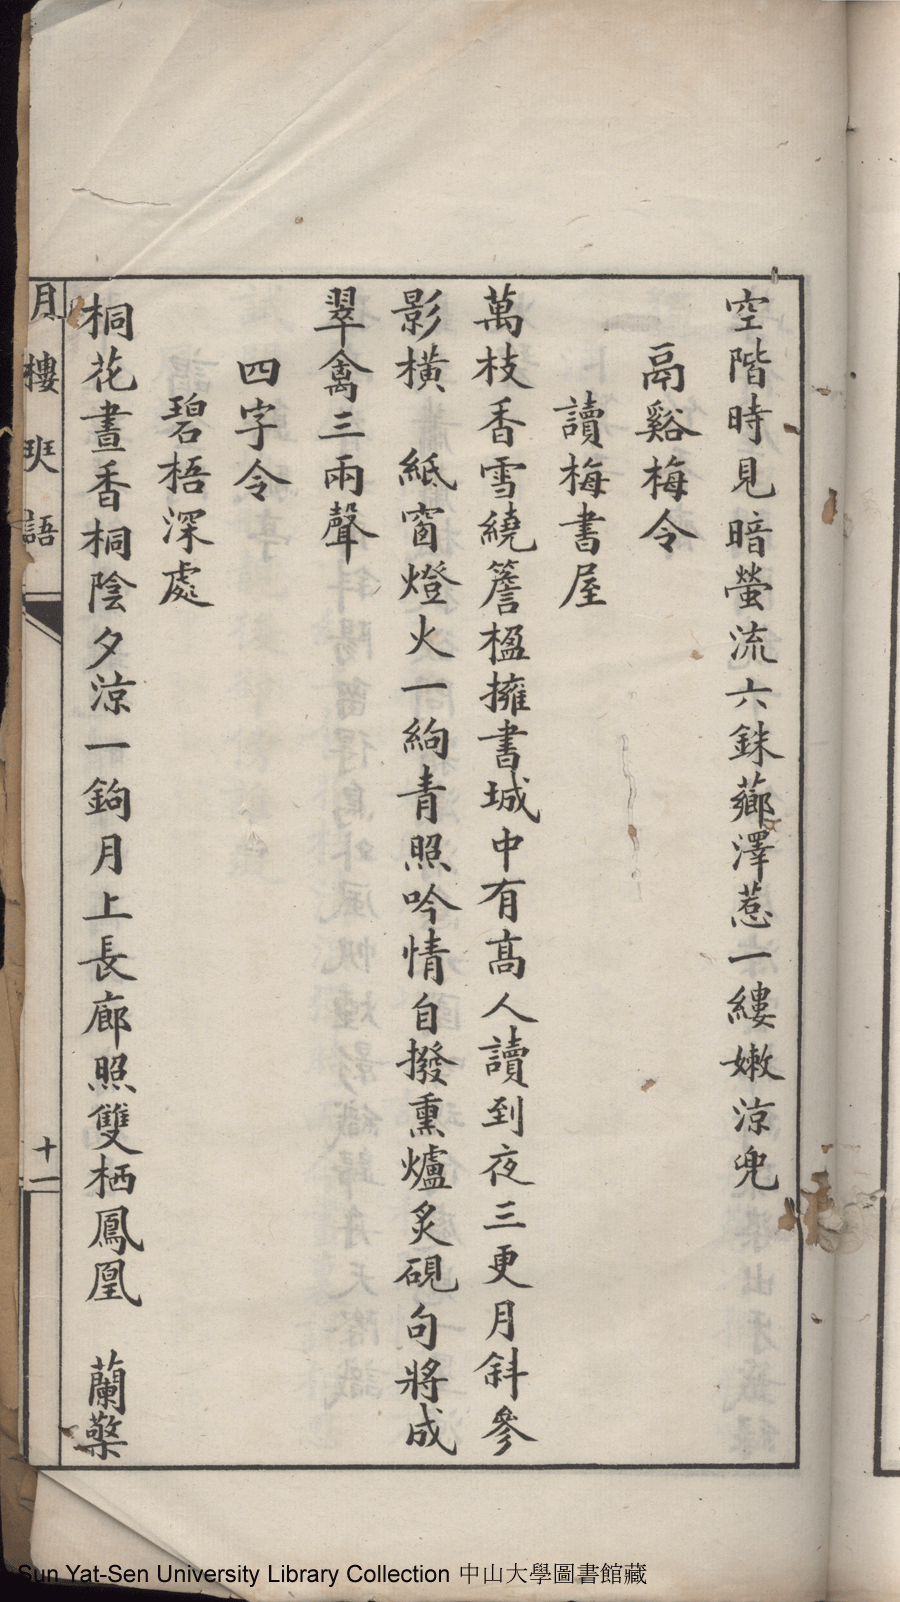 空階時見暗螢流六銖薌澤惹一縷嫩涼兜
鬲谿梅令
讀梅書屋
萬枝香雪繞簷楹擁書城中有高人讀到夜三更月斜參
影橫　紙窗燈火一絇青照吟情自撥熏爐炙硯句將成
翠禽三兩聲
四字令
碧梧深處
桐花晝香桐陰夕涼一鉤月上長廊照雙栖鳳凰　蘭檠
月樓琰語
十一
Sun Yat-Sen University Library Collection 中山大學圖書館藏